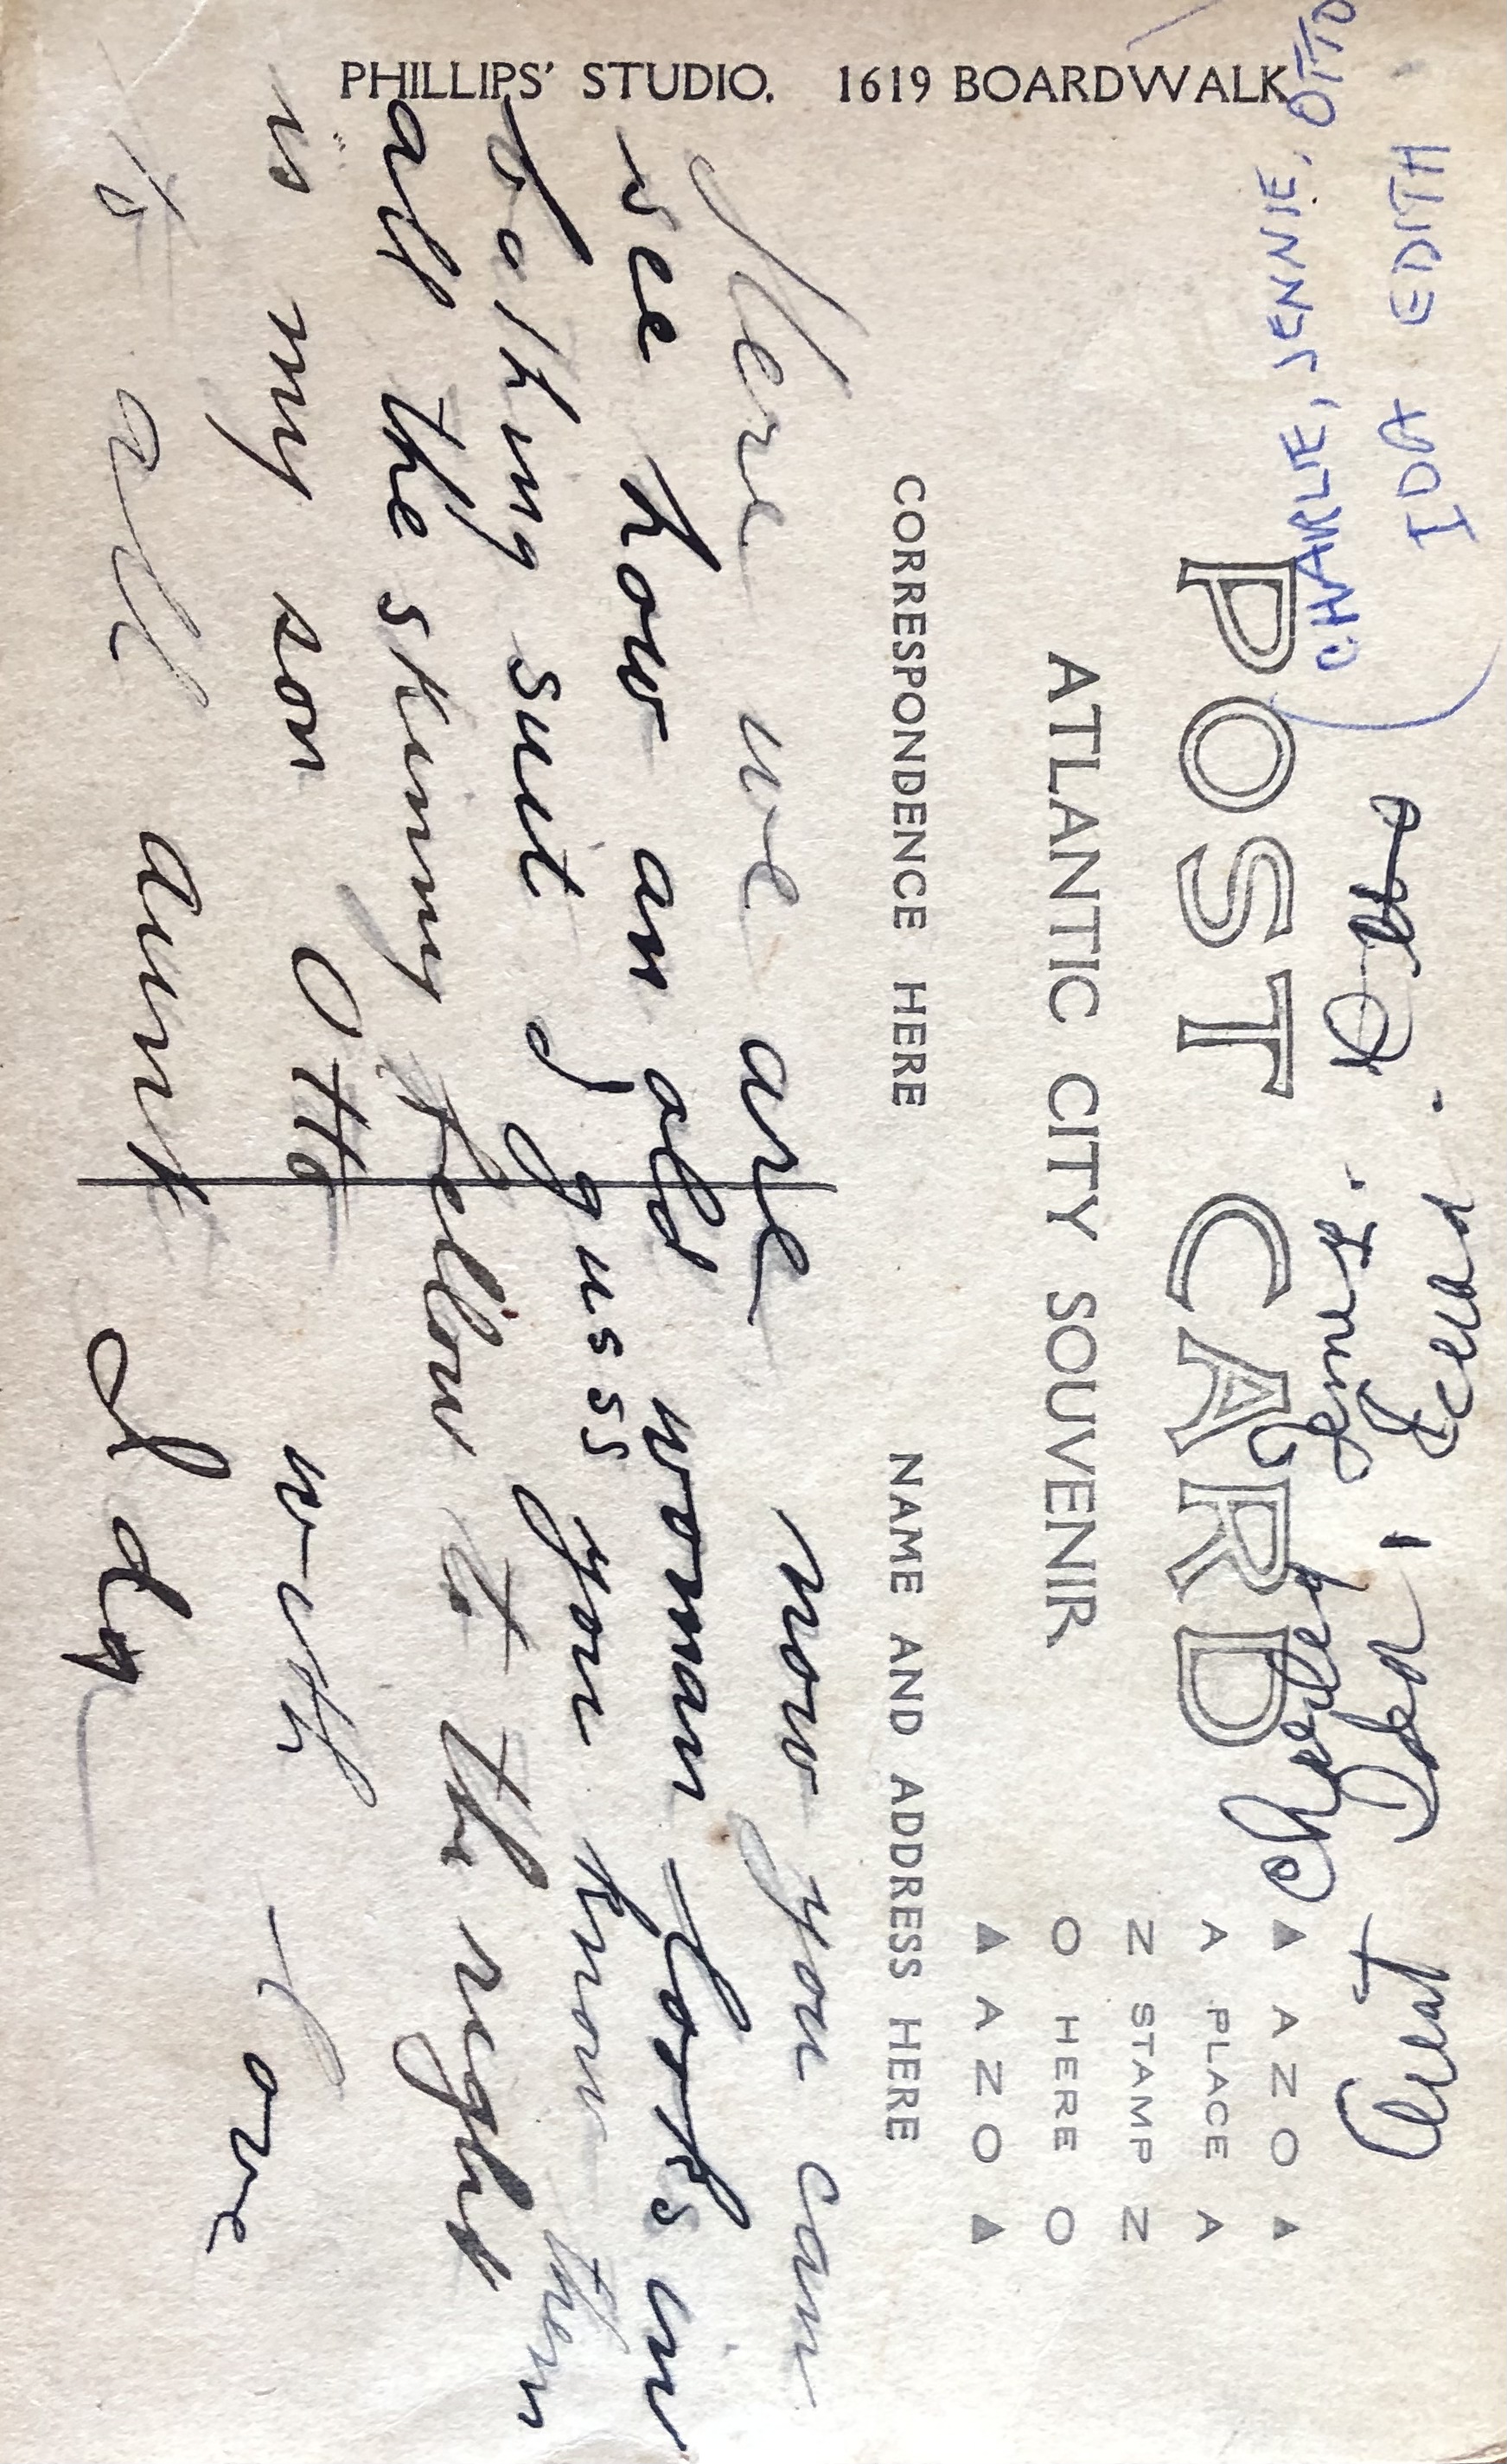 Charley
Otto
Aunt
CHARLIE, JENNIE, OTTO
IDA EDITH
POST CARD
ATLANTIC CITY SOUVENIR
AZO
PLACE
STAMP
HERE
AZO
CORRESPONDENCE HERE
NAME AND ADDRESS HERE
Here we are now you can
see how an old woman looks in
bathing suit I guss you know them
all the skinny fellow to the right
is my son Otto with Love
to all aunt Ida
PHILLIPS' STUDIO. 1619 BOARDWALK